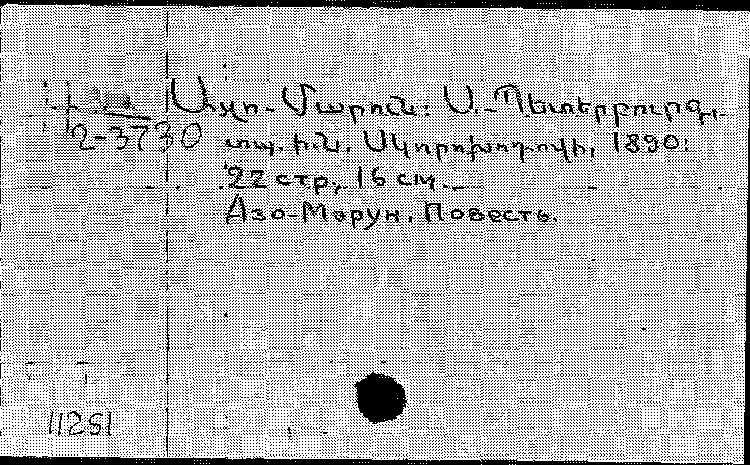 Ազօ-Մարուն: Ս.-Պետերբուրգ,
2-3730 տպ. Ի.Ն. Սկորոխոդովի, 1890:
22 стр., 16 см.
Азо-Марун. Повесть.
11251